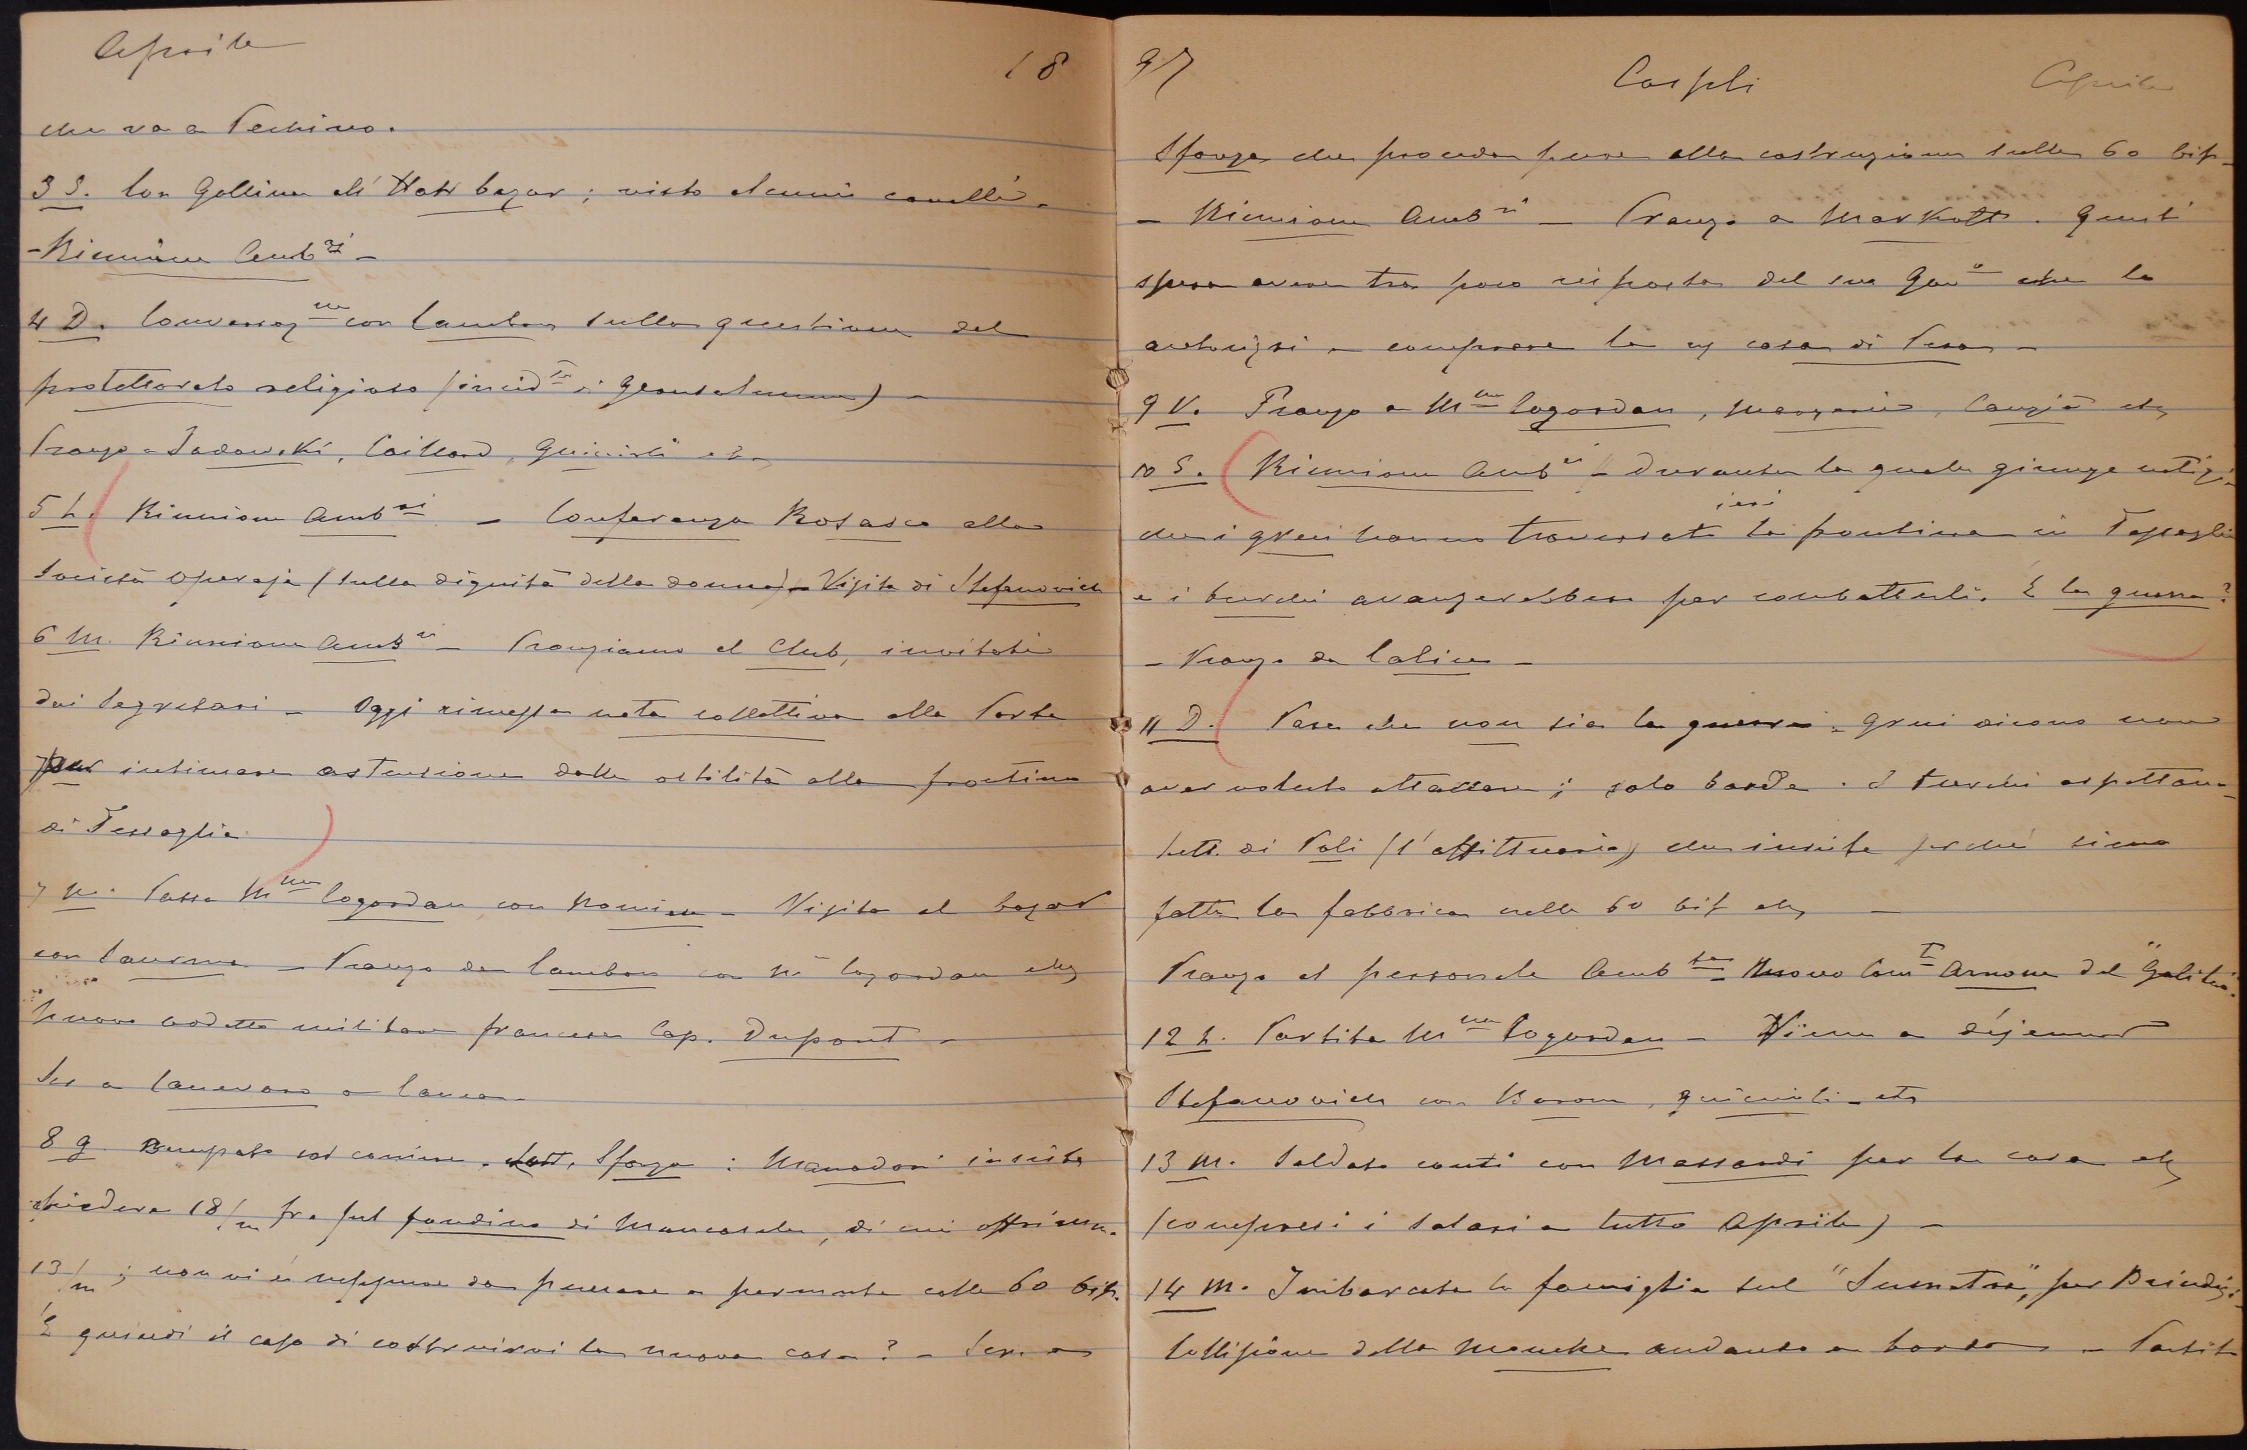 Aprile 18
che va a Pechino.
3 S. Con Gallina all' Hatr bazar; visto alcuni cavalli.
- Riunione Amb.ri -
4 D. Conversaz.ne con Cambon sulla questione del
protettorato religioso (incid.te di Gerusalemme) -
Pranzo a Sadowski, Caillard, Guiccioli etc.
5 L. Riunione Amb.ri - Conferenza Rosasco alla
Società Operaja (sulla dignità della donna) - Visita di Stefanovich
6 M. Riunione Amb.ri - Pranziamo al Club, invitati
dai Segretari - Oggi rimessa nota collettiva alla Porta
per intimare astensione dalle ostilità alla frontiera
di Tessaglia
7 M. Passa M.me Cogordan con - Visita al bazar
con - Pranzo da Cambon con M.e Cogordan etc
Nuovo addetto militare francese Cap. Dupont -
Scr. a Canevaro a Canea -
8 G. col camino. Lett. Sforza: Manodori insiste
chiedere 18/m fra sul fondino di Mancasale, di cui offrimmo
13/m; non vi è neppure da pensare a permuta colle 60 bif.
È quindi il caso di costruirvi la nuova casa? - Scr. a
97 Cospli Aprile
Sforza che proceda pure alla costruzione sulle 60 bif.
- Riunione Amb.ri - Pranzo a Markoff. Questi
spera avere tra poco risposta del suo Gov.o che lo
autorizzi a comprare la casa di Pera -
9 V. Pranzo a M.me Cogordan, , etc
10 S. Riunione Amb.ri - durante la quale giunge notizia
ieri
che i greci hanno traversato la frontiera in Tessaglia
e i turchi avanzerebbero per combatterli. È la guerra?
- Pranzo da Calice -
11 D. Pare che non sia la guerra. Greci dicono non
aver voluto attaccare; solo bande. I turchi aspettano -
Lett. di Poli (l'affittuario) che insiste perché siano
fatte la fabbrica nelle 60 bif etc -
Pranzo al personale Amb.ta Nuovo Com.te Arnone del "Galilei".
12 L. Partita M.me Cogordan - Viene a déjeuner
Stefanovich con , Guiccioli etc
13 M. Saldato conti con Massardi per la casa etc
(compresi i salari a tutto Aprile) -
14 M. Imbarcata la famiglia sul "Sumatra", per Brindisi.
Collisione della mouche andando a bordo - Partita